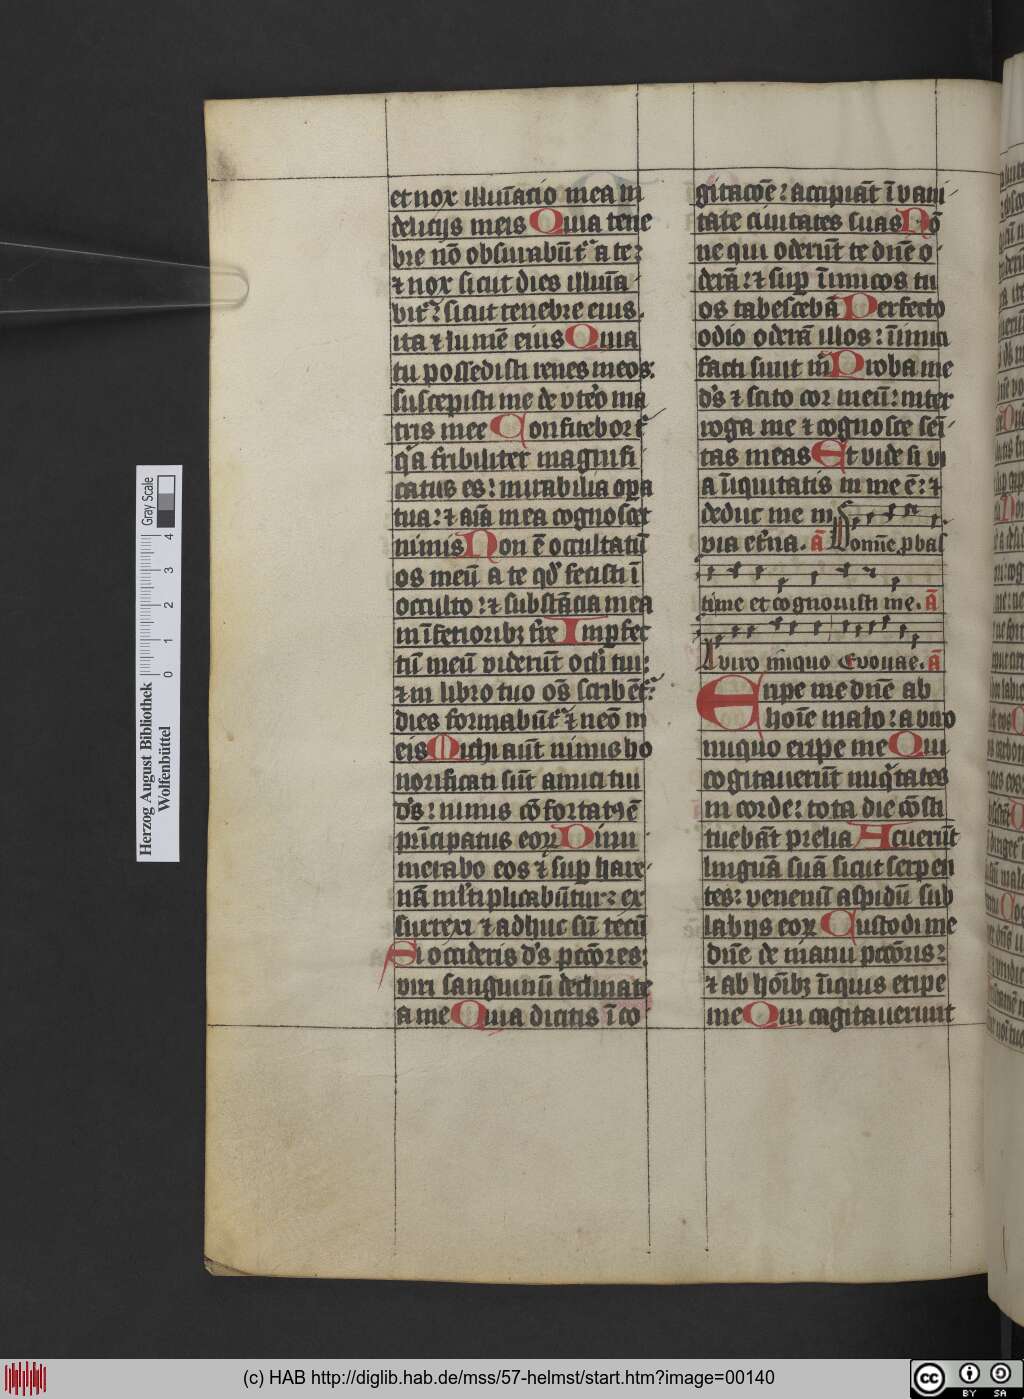 et nox illuīatio mea in
delicijs meis Quia tene
bre nō obscurabūt᷑ a te:
⁊ nox sicut dies illuīa
bit᷑: sicut tenebre eius.
ita ⁊ lumē eius Quia
tu possedisti renes meos:
suscepisti me de vtēo ma
tris mee Confitebor t̄
q̄a tribiliter magnifi
catus es: mirabilia opa
tua: ⁊ aīa mea cognoscet
nimis Non ē occultatū
os meū a te qd̄ fecisti ī
occulto: ⁊ substācia mea
in īferioribꝫ tr̄e Imperfec
tū meū viderūt ocl̄i tui:
⁊ in libro tuo oēs scribēt᷑:
dies formabūt᷑ ⁊ nēo in
eis Michi aūt nimis ho
norificati sūt amici tui
ds̄: nimis cōfortatꝰ ē
prīcipatus eoꝝ Dinu
merabo eos ⁊ sup hare
nā ml̄tiplicabūtur: ex
surrexi ⁊ adhuc sū tecū
Si occideris ds̄ pccōres:
viri sanguinū declinate
a me Quia dicitis ī co
gitacōe: accipiāt ī vani
tate ciuitates suas Nō
ne qui oderūt te dn̄e o
derā: ⁊ sup īimicos tu
os tabescebā Perfecto
odio oderā illos: īimici
facti sunt m̄ Proba me
ds̄ ⁊ scito cor meū: inter
roga me ⁊ cognosce sēi
tas meas Et vide si vi
a īiquitatis in me ē: ⁊
deduc me in
via et̄na. ā Domīe pbas
time et cognouisti me. ā
A viro iniquo Euouae. ā
Eripe me dn̄e ab
hoīe malo: a viro
iniquo eripe me Qui
cogitauerūt iniq̄tates
in corde: tota die cōsti
tuebāt prelia Acuerūt
linguā suā sicut serpen
tes: venenū aspidū sub
labijs eoꝝ Custodi me
dn̄e de manu pccōris:
⁊ ab hōibꝫ īiquis eripe
me Qui cogitauerunt
Herzog August Bibliothek
Wolfenbüttel
0 1 2 3 4
Gray Scale
(c) HAB http://diglib.hab.de/mss/57-helmst/start.htm?image=00140
cc BY SA